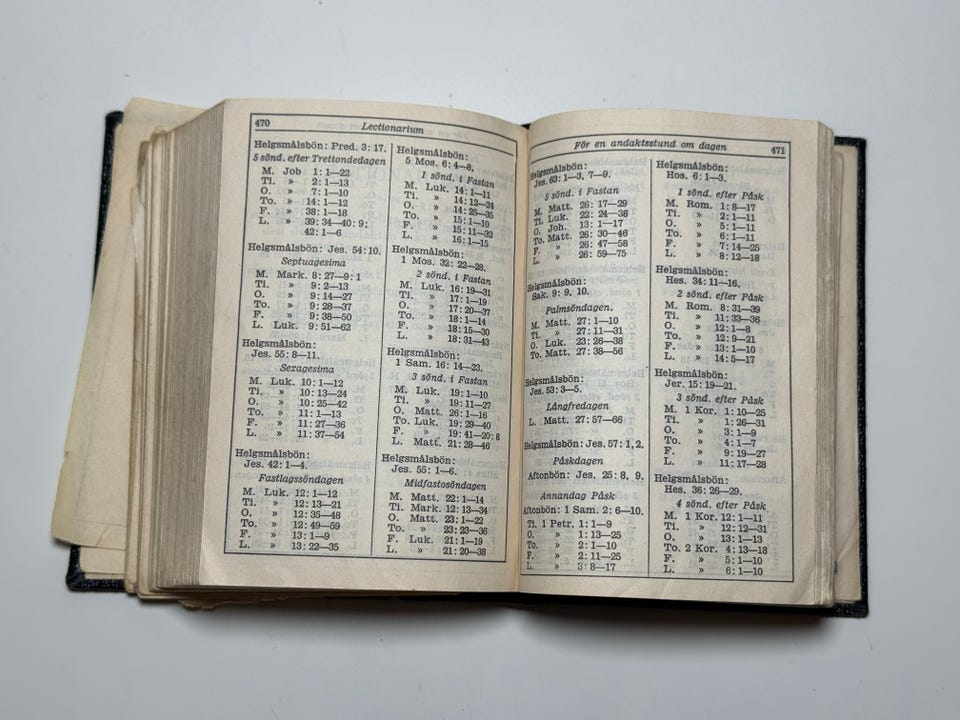 470
Lectionarium
Helgsmålsbön: Pred. 3: 17.
5 sönd. efter Trettondedagen
M. Job 1: 1—22
Ti. » 2: 1—13
O. » 7: 1—10
To. » 14: 1—12
F. » 38: 1—18
L. » 39: 34—40: 9;
42: 1—6
Helgsmålsbön: Jes. 54: 10.
Septuagesima
M. Mark. 8: 27—9: 1
Ti. » 9: 2—13
O. » 9: 14—27
To. » 9: 28—37
F. » 9: 38—50
L. Luk. 9: 51—62
Helgsmålsbön:
Jes. 55: 8—11.
Sexagesima
M. Luk. 10: 1—12
Ti. » 10: 13—24
O. » 10: 25—42
To. » 11: 1—13
F. » 11: 27—36
L. » 11: 37—54
Helgsmålsbön:
Jes. 42: 1—4.
Fastlagssöndagen
M. Luk. 12: 1—12
Ti. » 12: 13—21
O. » 12: 35—48
To. » 12: 49—59
F. » 13: 1—9
L. » 13: 22—35
Helgsmålsbön:
5 Mos. 6: 4—8.
1 sönd. i Fastan
M. Luk. 14: 1—11
Ti. » 14: 12—24
O. » 14: 25—35
To. » 15: 1—10
F. » 15: 11—32
L. » 16: 1—15
Helgsmålsbön:
1 Mos. 32: 22—28.
2 sönd. i Fastan
M. Luk. 16: 19—31
Ti. » 17: 1—19
O. » 17: 20—37
To. » 18: 1—14
F. » 18: 15—30
L. » 18: 31—43
Helgsmålsbön:
1 Sam. 16: 14—23.
3 sönd. i Fastan
M. Luk. 19: 1—10
Ti. » 19: 11—27
O. Matt. 26: 1—16
To. Luk. 19: 29—40
F. » 19: 41—20: 8
L. Matt. 21: 28—46
Helgsmålsbön:
Jes. 55: 1—6.
Midfastosöndagen
M. Matt. 22: 1—14
Ti. Mark. 12: 13—34
O. Matt. 23: 1—22
To. » 23: 23—36
F. Luk. 21: 1—19
L. » 21: 20—38
För en andaktsstund om dagen
471
Helgsmålsbön:
Jes. 63: 1—3, 7—9.
5 sönd. i Fastan
M. Matt. 26: 17—29
Ti. Luk. 22: 24—38
O. Joh. 13: 1—17
To. Matt. 26: 30—46
F. » 26: 47—58
L. » 26: 59—75
Helgsmålsbön:
Sak. 9: 9, 10.
Palmsöndagen.
M. Matt. 27: 1—10
Ti. » 27: 11—31
O. Luk. 23: 26—38
To. Matt. 27: 38—56
Helgsmålsbön:
Jes. 53: 3—5.
Långfredagen
L. Matt. 27: 57—66
Helgsmålsbön: Jes. 57: 1, 2.
Påskdagen
Aftonbön: Jes. 25: 8, 9.
Annandag Påsk
Aftonbön: 1 Sam. 2: 6—10.
Ti. 1 Petr. 1: 1—9
O. » 1: 13—25
To. » 2: 1—10
F. » 2: 11—25
L. » 3: 8—17
Helgsmålsbön:
Hos. 6: 1—3.
1 sönd. efter Påsk
M. Rom. 1: 8—17
Ti. » 2: 1—11
O. » 5: 1—11
To. » 6: 1—11
F. » 7: 14—25
L. » 8: 12—18
Helgsmålsbön:
Hes. 34: 11—16.
2 sönd. efter Påsk
M. Rom. 8: 31—39
Ti. » 11: 33—36
O. » 12: 1—8
To. » 12: 9—21
F. » 13: 1—10
L. » 14: 5—17
Helgsmålsbön:
Jer. 15: 19—21.
3 sönd. efter Påsk
M. 1 Kor. 1: 10—25
Ti. » 1: 26—31
O. » 3: 1—9
To. » 4: 1—7
F. » 9: 19—27
L. » 11: 17—28
Helgsmålsbön:
Hes. 36: 26—29.
4 sönd. efter Påsk
M. 1 Kor. 12: 1—11
Ti. » 12: 12—31
O. » 13: 1—13
To. 2 Kor. 4: 13—18
F. » 5: 1—10
L. » 6: 1—10